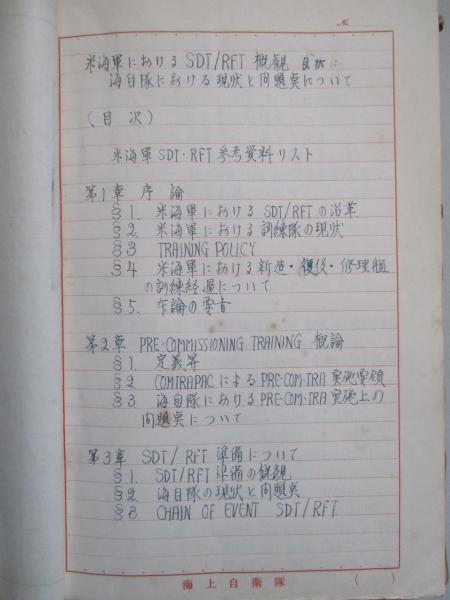 米海軍における SDT/RFT 概観 並びに
海自隊における現状と問題点について
(目 次)
米海軍 SDT・RFT 参考資料リスト
第1章 序 論
§1. 米海軍における SDT/RFT の沿革
§2. 米海軍における訓練隊の現状
§3 TRAINING POLICY
§4 米海軍における新造・復役・修理艦
の訓練経過について
§5. 本論の要旨
第2章 PRE-COMMISSIONING TRAINING 概論
§1. 定義等
§2 COMTRAPAC による PRE-COM-TRA 実施要領
§3. 海自隊における PRE-COM-TRA 実施上の
問題点について
第3章 SDT/RFT 準備について
§1. SDT/RFT 準備の概観
§2. 海自隊の現状と問題点
§3 CHAIN OF EVENT SDT/RFT
海上自衛隊 ( )